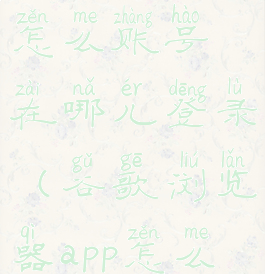 zěn me zhàng hào
怎么账号
zài nǎ ér dēng lù
在哪儿登录
gǔ gē liú lǎn
（谷歌浏览
qì zěn me
器app怎么